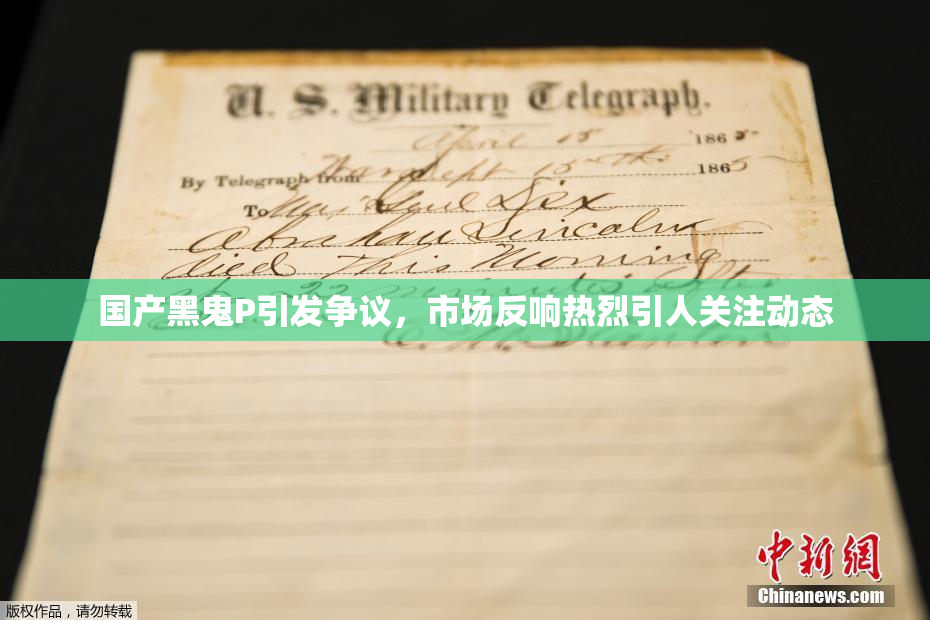 U. S. Military Telegraph.
April 15 1865
By Telegraph from War Dept 15th 1865
To Maj Genl Dix
Abraham Lincoln
died This Morning
22 minutes after
国产黑鬼P引发争议，市场反响热烈引人关注动态
E. M. Stanton
中新网
Chinanews.com
版权作品，请勿转载